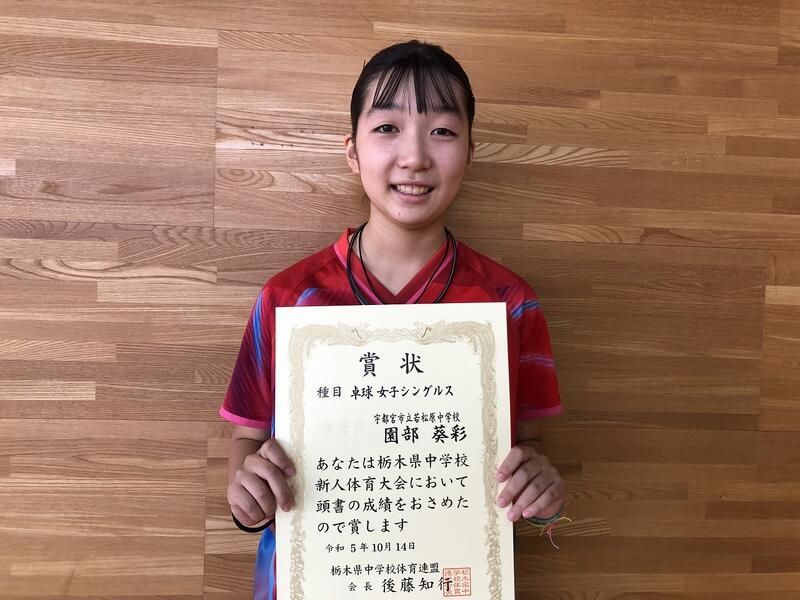 賞状
種目 卓球 女子シングルス
宇都宮市立若松原中学校
準優勝 園部 葵彩
あなたは栃木県中学校
新人体育大会において
頭書の成績をおさめた
ので賞します
令和 5年10月14日
栃木県中学校体育連盟
会長 後藤知行